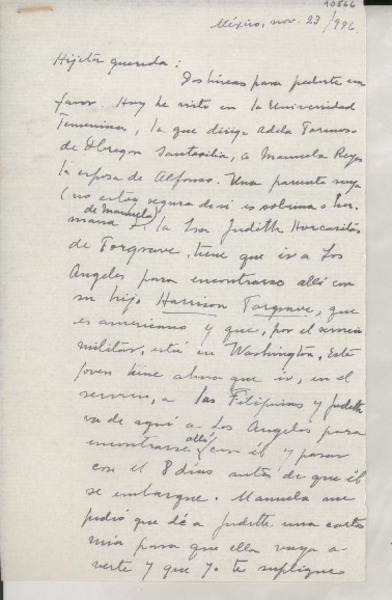 10566
México, nov. 23/946
Hijita querida:
Dos líneas para pedirte un
favor. Hoy he visto en la Universidad
Femenina, la que dirige Adela Formoso
de Obregón Santacilia, a Manuela Reyes
la esposa de Alfonso. Una parienta suya
(no estoy segura de si es sobrina o her-
mana de Manuela), la Sra Judith Horcasitas
de Forgrave, tiene que ir a Los
Angeles para encontrarse allí con
su hijo Harrison Forgrave, que
es americano y que, por el servicio
militar, está en Washington. Este
joven tiene ahora que ir, en el
servicio, a las Filipinas y Judith
va de aquí a Los Angeles para
encontrarse allí con él y pasar
con el 8 días antes de que él
se embarque. Manuela me
pidió que dé a Judith una carta
mía para que ella vaya a
verte y que yo te suplique